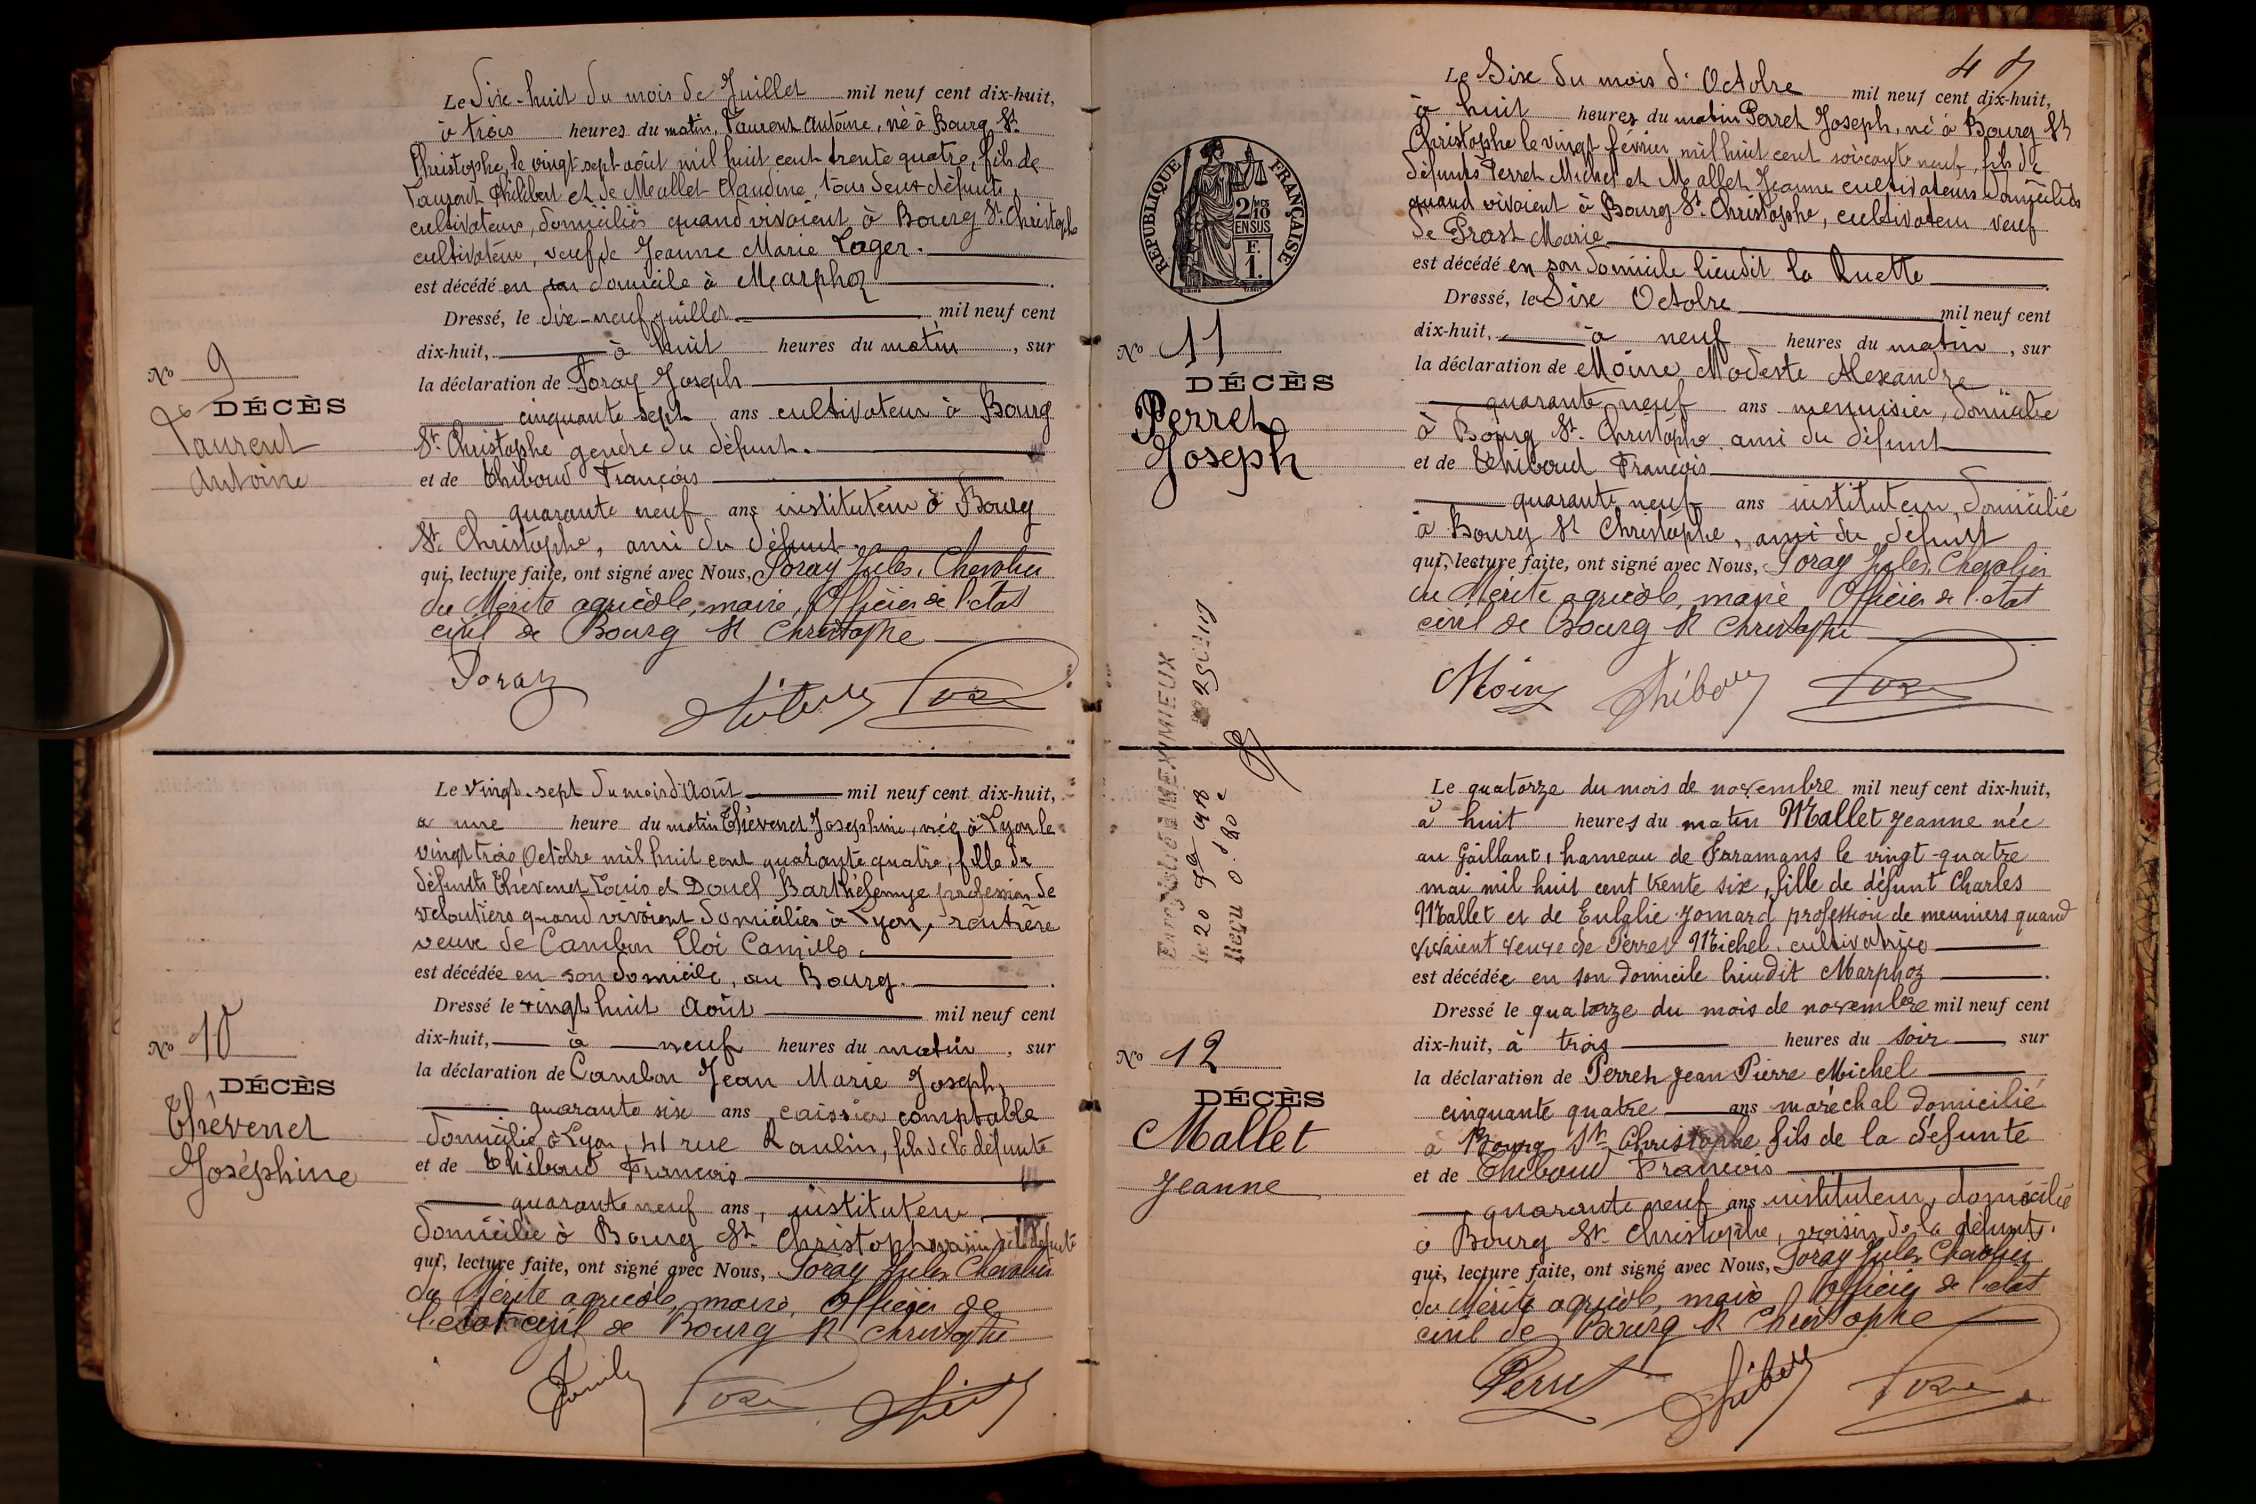 Le Dix-huit du mois de Juillet mil neuf cent dix-huit,
à trois heures du matin, Laurent Antoine, né à Bourg St
Christophe, le vingt sept août mil huit cent trente quatre, fils de
Laurent Philibert et de Mallet Claudine, tous deux défunts,
cultivateurs, domiciliés quand vivaient à Bourg St. Christophe
cultivateur, veuf de Jeanne Marie Loger.
est décédé en son domicile à Marphoz
Dressé, le dix-neuf juillet mil neuf cent
dix-huit, à huit heures du matin, sur
la déclaration de Foray Joseph
cinquante sept ans cultivateur à Bourg
St. Christophe gendre du défunt.
et de Thiboud François
quarante neuf ans instituteur à Bourg
St. Christophe, ami du défunt.
qui, lecture faite, ont signé avec Nous, Foray Jules, Chevalier
du Mérite agricole, maire, Officier de l'état
civil de Bourg St Christophe
Foray
No 9
DÉCÈS
Laurent
Antoine
Le Vingt-sept du mois d'Août mil neuf cent dix-huit,
à une heure du matin Thévenet Joséphine, née à Lyon le
vingt trois Octobre mil huit cent quarante quatre, fille de
défunts Thévenet Louis et Douel Barthélemye profession de
veloutiers quand vivaient domiciliés à Lyon, rentière
veuve de Cambon Eloi Camille.
est décédée en son domicile, au Bourg.
Dressé le vingt huit Août mil neuf cent
dix-huit, à neuf heures du matin, sur
la déclaration de Cambon Jean Marie Joseph,
quarante six ans caissier comptable
domicilié à Lyon, 41 rue Raulin, fils de la défunte
et de Thiboud François
quarante neuf ans, instituteur,
domicilié à Bourg St. Christophe voisin de la défunte
qui, lecture faite, ont signé avec Nous, Foray Jules Chevalier
du Mérite agricole, maire, Officier de
l'état civil de Bourg St Christophe
No 10
DÉCÈS
Thévenet
Joséphine
RÉPUBLIQUE FRANÇAISE
2/10
EN SUS
F.
1.
Le Dix du mois d'Octobre mil neuf cent dix-huit,
à huit heures du matin Perret Joseph, né à Bourg St
Christophe le vingt février mil huit cent soixante neuf, fils de
défunts Perret Michel et Mallet Jeanne cultivateurs domiciliés
quand vivaient à Bourg St. Christophe, cultivateur veuf
de Prost Marie
est décédé en son domicile lieudit la Ruette
Dressé, le Dix Octobre mil neuf cent
dix-huit, à neuf heures du matin, sur
la déclaration de Moine Modeste Alexandre
quarante neuf ans menuisier, domicilié
à Bourg St. Christophe ami du défunt
et de Thiboud François
quarante neuf ans instituteur, domicilié
à Bourg St Christophe, ami du défunt
qui, lecture faite, ont signé avec Nous, Foray Jules, Chevalier
du Mérite agricole, maire Officier de l'état
civil de Bourg St Christophe
Moine Thiboud
No 11
DÉCÈS
Perret
Joseph
MEXIMIEUX
Le quatorze du mois de novembre mil neuf cent dix-huit,
à huit heures du matin Mallet Jeanne née
au Gaillant, hameau de Faramans le vingt-quatre
mai mil huit cent trente six, fille de défunt Charles
Mallet et de Eulalie Jomard profession de meuniers quand
vivaient veuve de Perret Michel. cultivatrice
est décédée en son domicile lieudit Marphoz
Dressé le quatorze du mois de novembre mil neuf cent
dix-huit, à trois heures du soir sur
la déclaration de Perret Jean Pierre Michel
cinquante quatre ans maréchal domicilié
à Bourg St. Christophe fils de la défunte
et de Thiboud François
quarante neuf ans instituteur, domicilié
à Bourg St Christophe, voisin de la défunte.
qui, lecture faite, ont signé avec Nous, Foray Jules Chevalier
du Mérite agricole, maire Officier de l'état
civil de Bourg St Christophe
Perret
No 12
DÉCÈS
Mallet
Jeanne